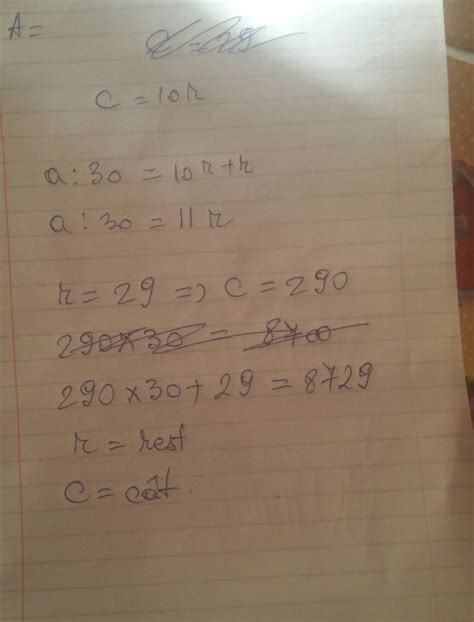 A=
c = 10r
a : 30 = 10r+r
a : 30 = 11r
r = 29 => c = 290
290×30 = 8700
290×30+29 = 8729
r = rest
c = cât.